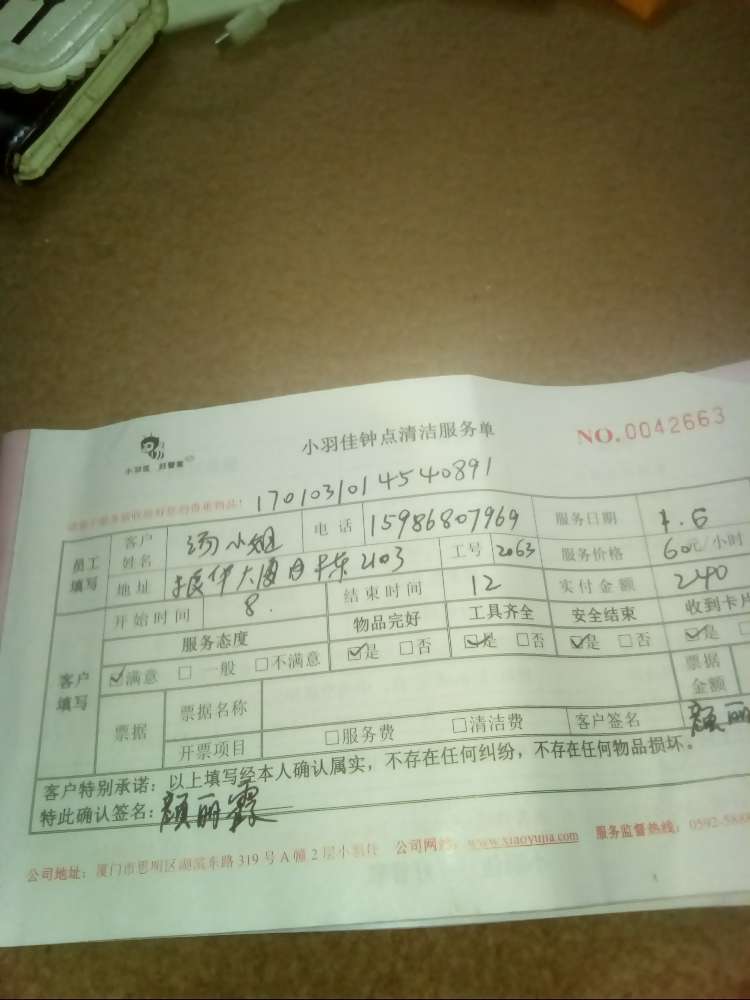 小羽佳 好管家
小羽佳钟点清洁服务单
NO.0042663
1701031014540891
员工填写 客户姓名 汤小姐 电话 15986807969 服务日期 1.6
地址 振华大厦 2103 工号 2063 服务价格 60元/小时
客户填写 开始时间 8. 结束时间 12 实付金额 240
服务态度 物品完好 工具齐全 安全结束 收到卡片
☑满意 □一般 □不满意 ☑是 □否 ☑是 □否 ☑是 □否 ☑是 □
票据 票据名称 票据金额
开票项目 □服务费 □清洁费 客户签名 颜丽
客户特别承诺:以上填写经本人确认属实,不存在任何纠纷,不存在任何物品损坏。
特此确认签名:颜丽霖
公司地址:厦门市思明区湖滨东路319号A幢2层小羽佳 公司网站:www.xiaoyujia.com 服务监督热线:0592-5888